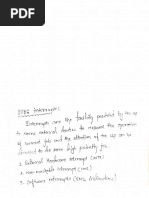 8086 Interrupts
Interrupts are the facility provided by the up
to some external device to request the operation
of current job and the attention of the up can be
diverted to the some high priority job.
1. External Hardware interrupt (INTR)
2. non-maskable interrupt (NMI)
3. Software interrupts (INT, instruction)